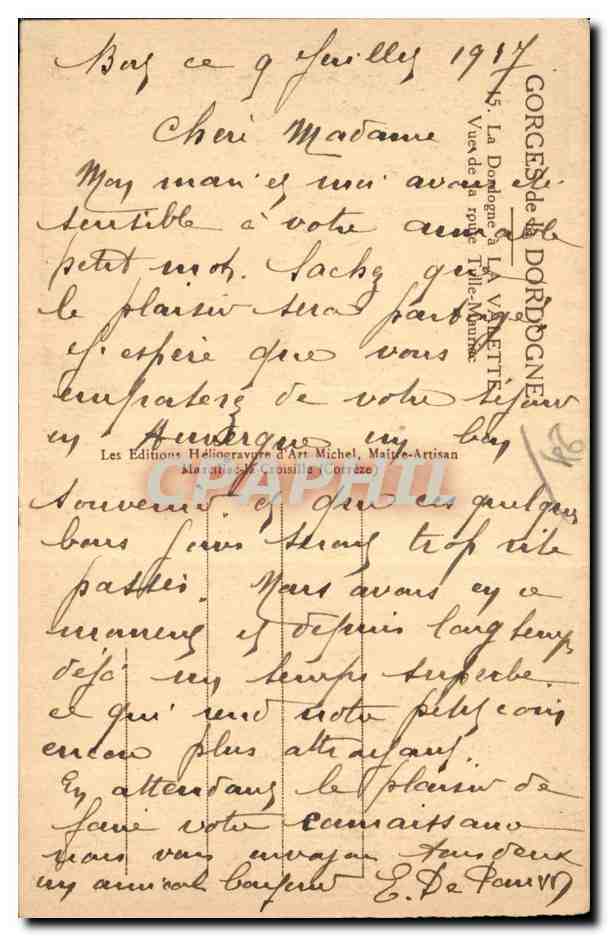 ce 9 Juillet 19
Cheré Madame
Mon mari et moi avons été
sensible à votre aimable
petit mot. Sachez que
le plaisir sera partagé
J'espère que vous
emporterez de votre séjour
en Auvergne un bon
souvenir et que ces quelques
bons jours seront trop vite
passés. Nous avons en ce
moment et depuis longtemps
déjà un temps superbe.
ce qui rend notre petit coin
encore plus attrayant.
En attendant le plaisir de
faire votre connaissance
nous vous envoyons tous deux
un amical bonjour E. De
GORGES de la DORDOGNE
15. La Dordogne à LA VALETTE
Vue de la route Tulle-Mauriac
Les Editions Héliogravure d'Art Michel, Maître-Artisan
Marcillac-la-Croisille (Corrèze)
CPAPHIL